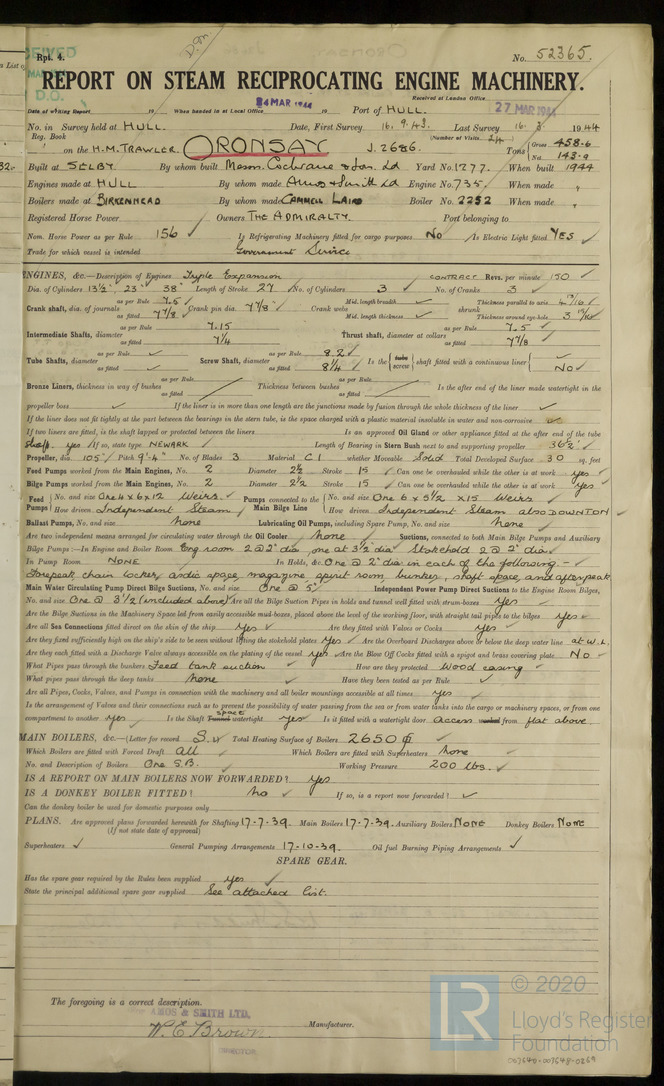 Rpt. 4.
No. 52365.
REPORT ON STEAM RECIPROCATING ENGINE MACHINERY.
Received at London Office
Date of writing Report 19 When handed in at Local Office 24 MAR 1944 19 Port of HULL. 27 MAR 1944
No. in Survey held at HULL. Date, First Survey 16. 9. 43. Last Survey 16. 3. 1944
Reg. Book (Number of Visits 24)
on the H.M. TRAWLER. ORONSAY J. 2686. Tons Gross 458.6 Net 143.9
Built at SELBY By whom built Messrs. Cochrane & Sons. Ld Yard No. 1277. When built 1944
Engines made at HULL By whom made Amos & Smith Ld Engine No. 735. When made "
Boilers made at BIRKENHEAD By whom made CAMMELL LAIRD Boiler No. 2252 When made "
Registered Horse Power Owners THE ADMIRALTY. Port belonging to
Nom. Horse Power as per Rule 156 Is Refrigerating Machinery fitted for cargo purposes No Is Electric Light fitted YES
Trade for which vessel is intended Government Service
ENGINES, &c.—Description of Engines Triple Expansion CONTRACT Revs. per minute 150
Dia. of Cylinders 13½" 23" 38" Length of Stroke 27 No. of Cylinders 3 No. of Cranks 3
Crank shaft, dia. of journals as per Rule 7.5 as fitted 7 7/8 Crank pin dia. 7 7/8 Crank webs Mid. length breadth Mid. length thickness shrunk Thickness parallel to axis 4 13/16 Thickness around eye-hole
Intermediate Shafts, diameter as per Rule 7.15 as fitted 7¼ Thrust shaft, diameter at collars as per Rule 7.5 as fitted 7 7/8
Tube Shafts, diameter as per Rule as fitted Screw Shaft, diameter as per Rule 8.2 as fitted 8¼ Is the tube screw shaft fitted with a continuous liner No
Bronze Liners, thickness in way of bushes as per Rule as fitted Thickness between bushes as per Rule as fitted Is the after end of the liner made watertight in the
propeller boss If the liner is in more than one length are the junctions made by fusion through the whole thickness of the liner
If the liner does not fit tightly at the part between the bearings in the stern tube, is the space charged with a plastic material insoluble in water and non-corrosive
If two liners are fitted, is the shaft lapped or protected between the liners Is an approved Oil Gland or other appliance fitted at the after end of the tube
shaft yes If so, state type NEWARK Length of Bearing in Stern Bush next to and supporting propeller 36½"
Propeller, dia. 105" Pitch 9'-4" No. of Blades 3 Material C1 whether Moveable Solid Total Developed Surface 30 sq. feet
Feed Pumps worked from the Main Engines, No. 2 Diameter 2½ Stroke 15 Can one be overhauled while the other is at work yes
Bilge Pumps worked from the Main Engines, No. 2 Diameter 2½ Stroke 15 Can one be overhauled while the other is at work yes
Feed Pumps No. and size One 4 x 6 x 12 Weirs Pumps connected to the Main Bilge Line No. and size One 6 x 5½ x 15 Weirs
How driven Independent Steam How driven Independent Steam also DOWNTON
Ballast Pumps, No. and size None Lubricating Oil Pumps, including Spare Pump, No. and size None
Are two independent means arranged for circulating water through the Oil Cooler None Suctions, connected to both Main Bilge Pumps and Auxiliary
Bilge Pumps:—In Engine and Boiler Room Eng room 2 @ 2" dia, one at 3½ dia. Stokehold 2 @ 2" dia
In Pump Room NONE In Holds, &c. One @ 2" dia in each of the following:-
Forepeak, chain locker, asdic space, magazine, spirit room, bunker, shaft space, and after peak
Main Water Circulating Pump Direct Bilge Suctions, No. and size One @ 5" Independent Power Pump Direct Suctions to the Engine Room Bilges,
No. and size One @ 3½ (included above) Are all the Bilge Suction Pipes in holds and tunnel well fitted with strum-boxes yes
Are the Bilge Suctions in the Machinery Space led from easily accessible mud-boxes, placed above the level of the working floor, with straight tail pipes to the bilges yes
Are all Sea Connections fitted direct on the skin of the ship yes Are they fitted with Valves or Cocks yes
Are they fixed sufficiently high on the ship's side to be seen without lifting the stokehold plates yes Are the Overboard Discharges above or below the deep water line at W.L.
Are they each fitted with a Discharge Valve always accessible on the plating of the vessel yes Are the Blow Off Cocks fitted with a spigot and brass covering plate No
What Pipes pass through the bunkers Feed tank suction How are they protected Wood casing
What pipes pass through the deep tanks None Have they been tested as per Rule
Are all Pipes, Cocks, Valves, and Pumps in connection with the machinery and all boiler mountings accessible at all times yes
Is the arrangement of Valves and their connections such as to prevent the possibility of water passing from the sea or from water tanks into the cargo or machinery spaces, or from one
compartment to another yes Is the Shaft Tunnel space watertight yes Is it fitted with a watertight door Access worked from flat above
MAIN BOILERS, &c.—(Letter for record S.) Total Heating Surface of Boilers 2650
Which Boilers are fitted with Forced Draft All Which Boilers are fitted with Superheaters None
No. and Description of Boilers One S.B. Working Pressure 200 lbs.
IS A REPORT ON MAIN BOILERS NOW FORWARDED? yes
IS A DONKEY BOILER FITTED? No If so, is a report now forwarded?
Can the donkey boiler be used for domestic purposes only
PLANS. Are approved plans forwarded herewith for Shafting 17-7-39. Main Boilers 17-7-39. Auxiliary Boilers NONE Donkey Boilers NONE
(If not state date of approval)
Superheaters General Pumping Arrangements 17-10-39. Oil fuel Burning Piping Arrangements
SPARE GEAR.
Has the spare gear required by the Rules been supplied yes
State the principal additional spare gear supplied See attached list.
The foregoing is a correct description.
AMOS & SMITH LTD,
W. E. Brown Manufacturer.
DIRECTOR
LR © 2020
Lloyd's Register
Foundation
003640-003648-0269